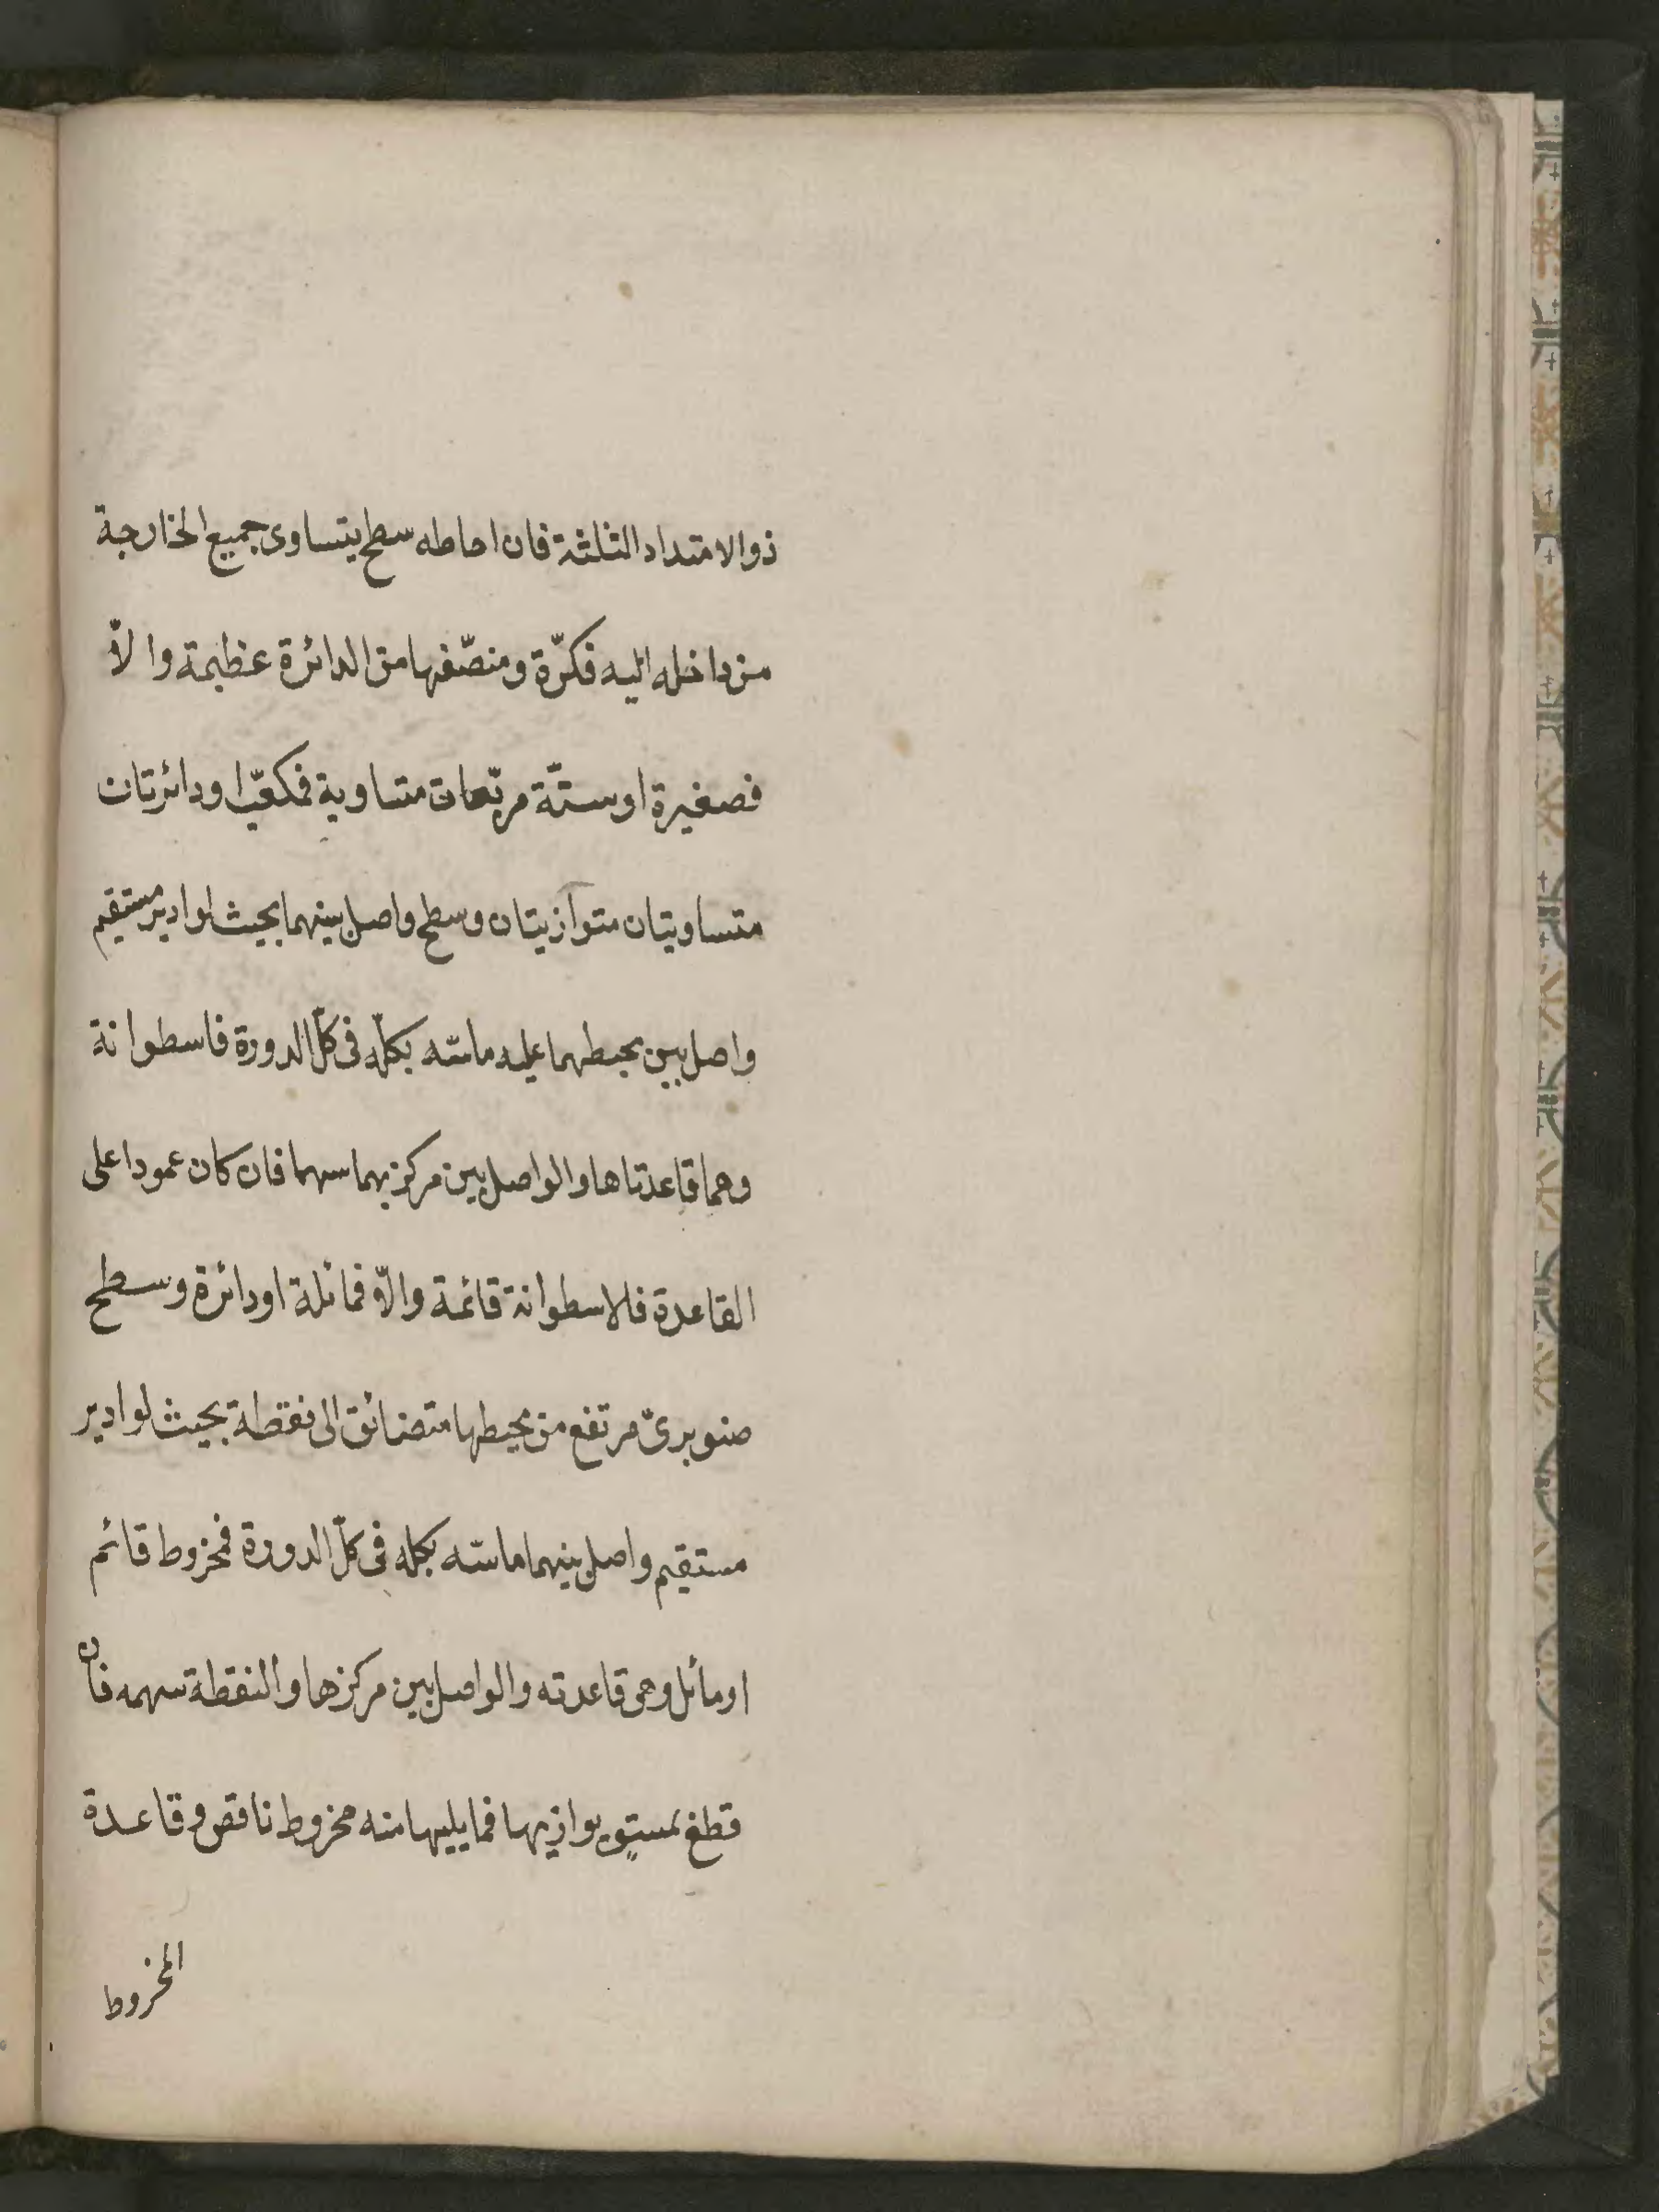 ذوالامتداد الثلثة فان احاطه سطح يتساوى جميع الخارجة
من داخله اليه فكرّة ومنصّفها من الدائرة عظيمة والاّ
فصغيرة اوستّة مربّعات متساوية فمكعّب اودائرتان
متساويتان متوازيتان وسطح واصل بينهما بحيث لوادير مستقيم
واصل بين محيطهما عليه ماسّه بكلّه فى كلّ الدورة فاسطوانة
وهما قاعدتاها والواصل بين مركزيهما سهما فان كان عمودا على
القاعدة فلاسطوانة قائمة والاّ فمائلة اودائرة وسطح
صنوبرىّ مرتفع من محيطها متضائق الى نقطة بحيث لوادير
مستقيم واصل بينهما ماسّه بكله فى كلّ الدورة فمخزوط قائم
اومائل وهى قاعدته والواصل بين مركزها والنقطة سهمه فان
قطغ بمستوٍ يوازيها فما يليها منه مخزوط ناقص وقاعدة
المخروط